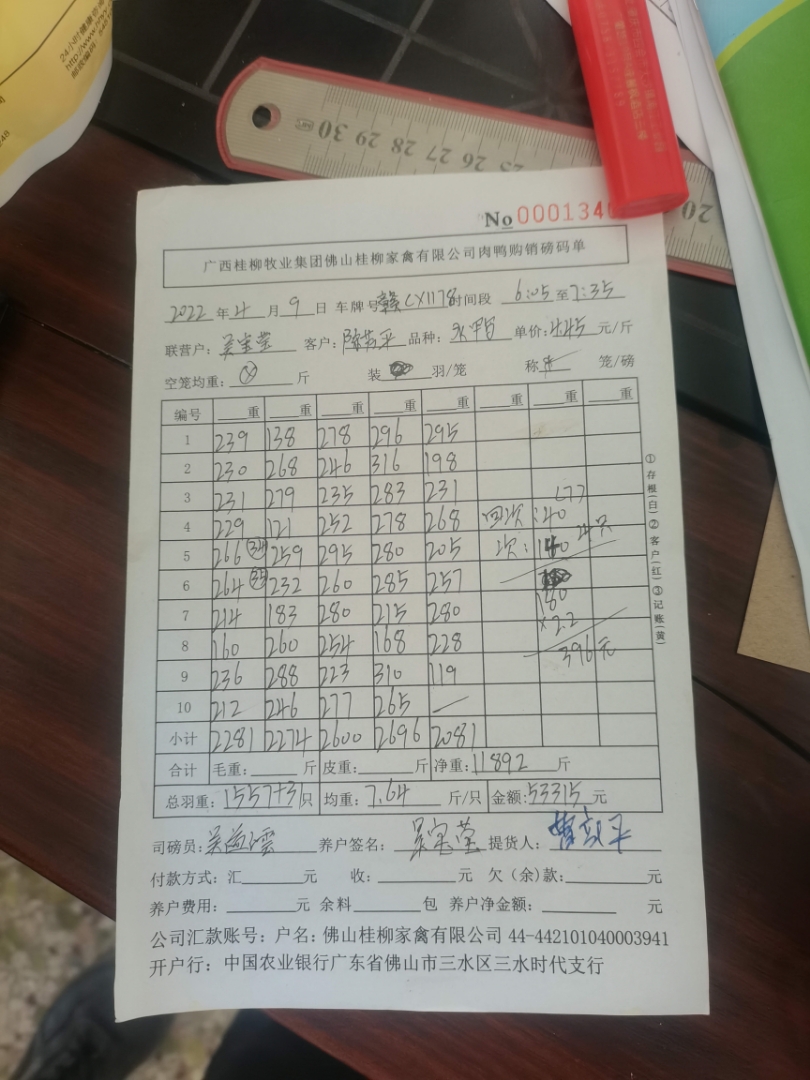 24小时健康咨询
http://www.
邮政编码：
30 29 28 27 26 25
20
No 000134
广西桂柳牧业集团佛山桂柳家禽有限公司肉鸭购销磅码单
2022 年 4 月 9 日 车牌号 赣CX1178 时间段 6:05 至 7:35
联营户： 客户： 品种： 单价：4.45 元/斤
空笼均重： 斤 装 羽/笼 称 笼/磅
编号 重 重 重 重 重 重 重 重
1 239 138 278 296 295
2 230 268 246 316 198
3 231 279 235 283 231 (7)
4 229 121 252 278 268 回次：40
5 266 (34) 259 295 280 205 次：140 24只
6 264 (35) 232 260 285 257
7 214 183 280 215 280 180
8 160 260 254 168 228 ×2.2
9 236 288 223 310 119 396元
10 212 246 277 265 —
小计 2281 2274 2600 2696 2081
合计 毛重： 斤 皮重： 斤 净重：11892 斤
总羽重：1557+31 只 均重：7.64 斤/只 金额：53315 元
司磅员： 养户签名：吴宝莹 提货人：
付款方式：汇 元 收： 元 欠（余）款： 元
养户费用： 元 余料 包 养户净金额： 元
公司汇款账号：户名：佛山桂柳家禽有限公司 44-442101040003941
开户行：中国农业银行广东省佛山市三水区三水时代支行
①存根(白)②客户(红)③记账(黄)